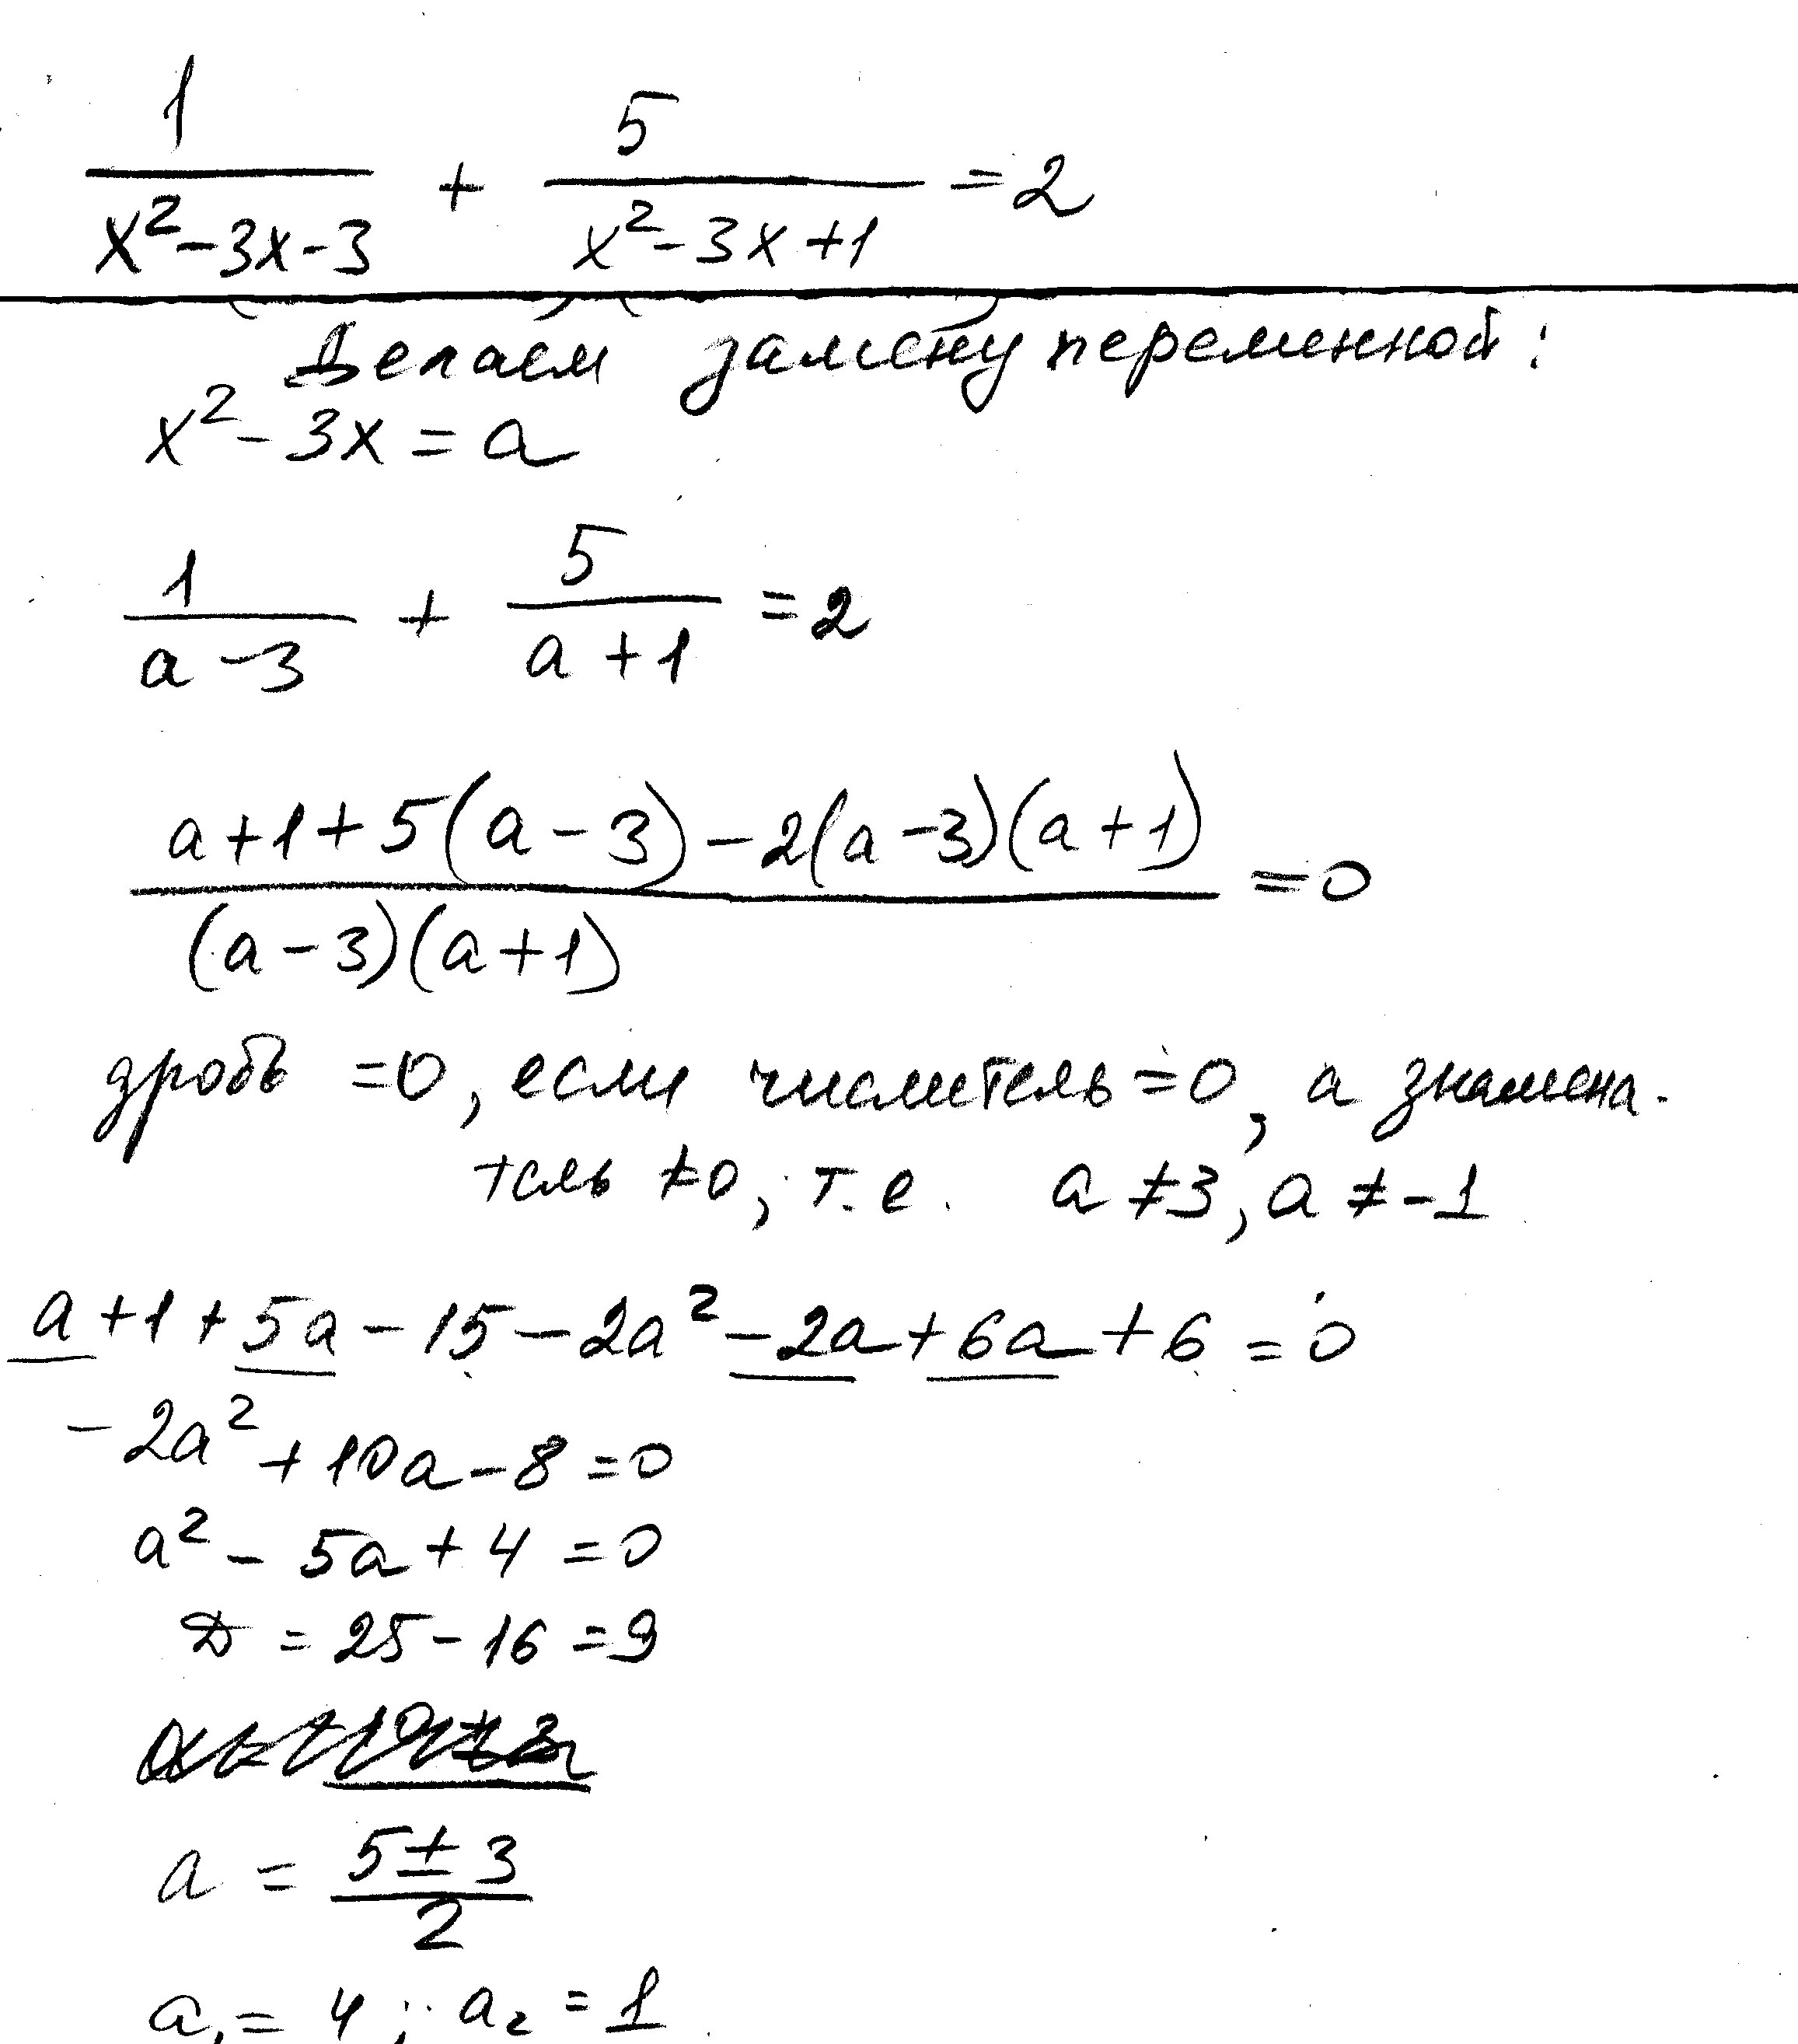 1/(x²-3x-3) + 5/(x²-3x+1) = 2
Делаем замену переменной:
x²-3x = a
1/(a-3) + 5/(a+1) = 2
(a+1+5(a-3)-2(a-3)(a+1))/((a-3)(a+1)) = 0
дробь =0, если числитель =0, а знамена-
тель ≠0, т.е. a ≠ 3, a ≠ -1
a+1+5a-15-2a²-2a+6a+6=0
-2a²+10a-8=0
a²-5a+4=0
D=25-16=9
a = (5±3)/2
a₁=4; a₂=1